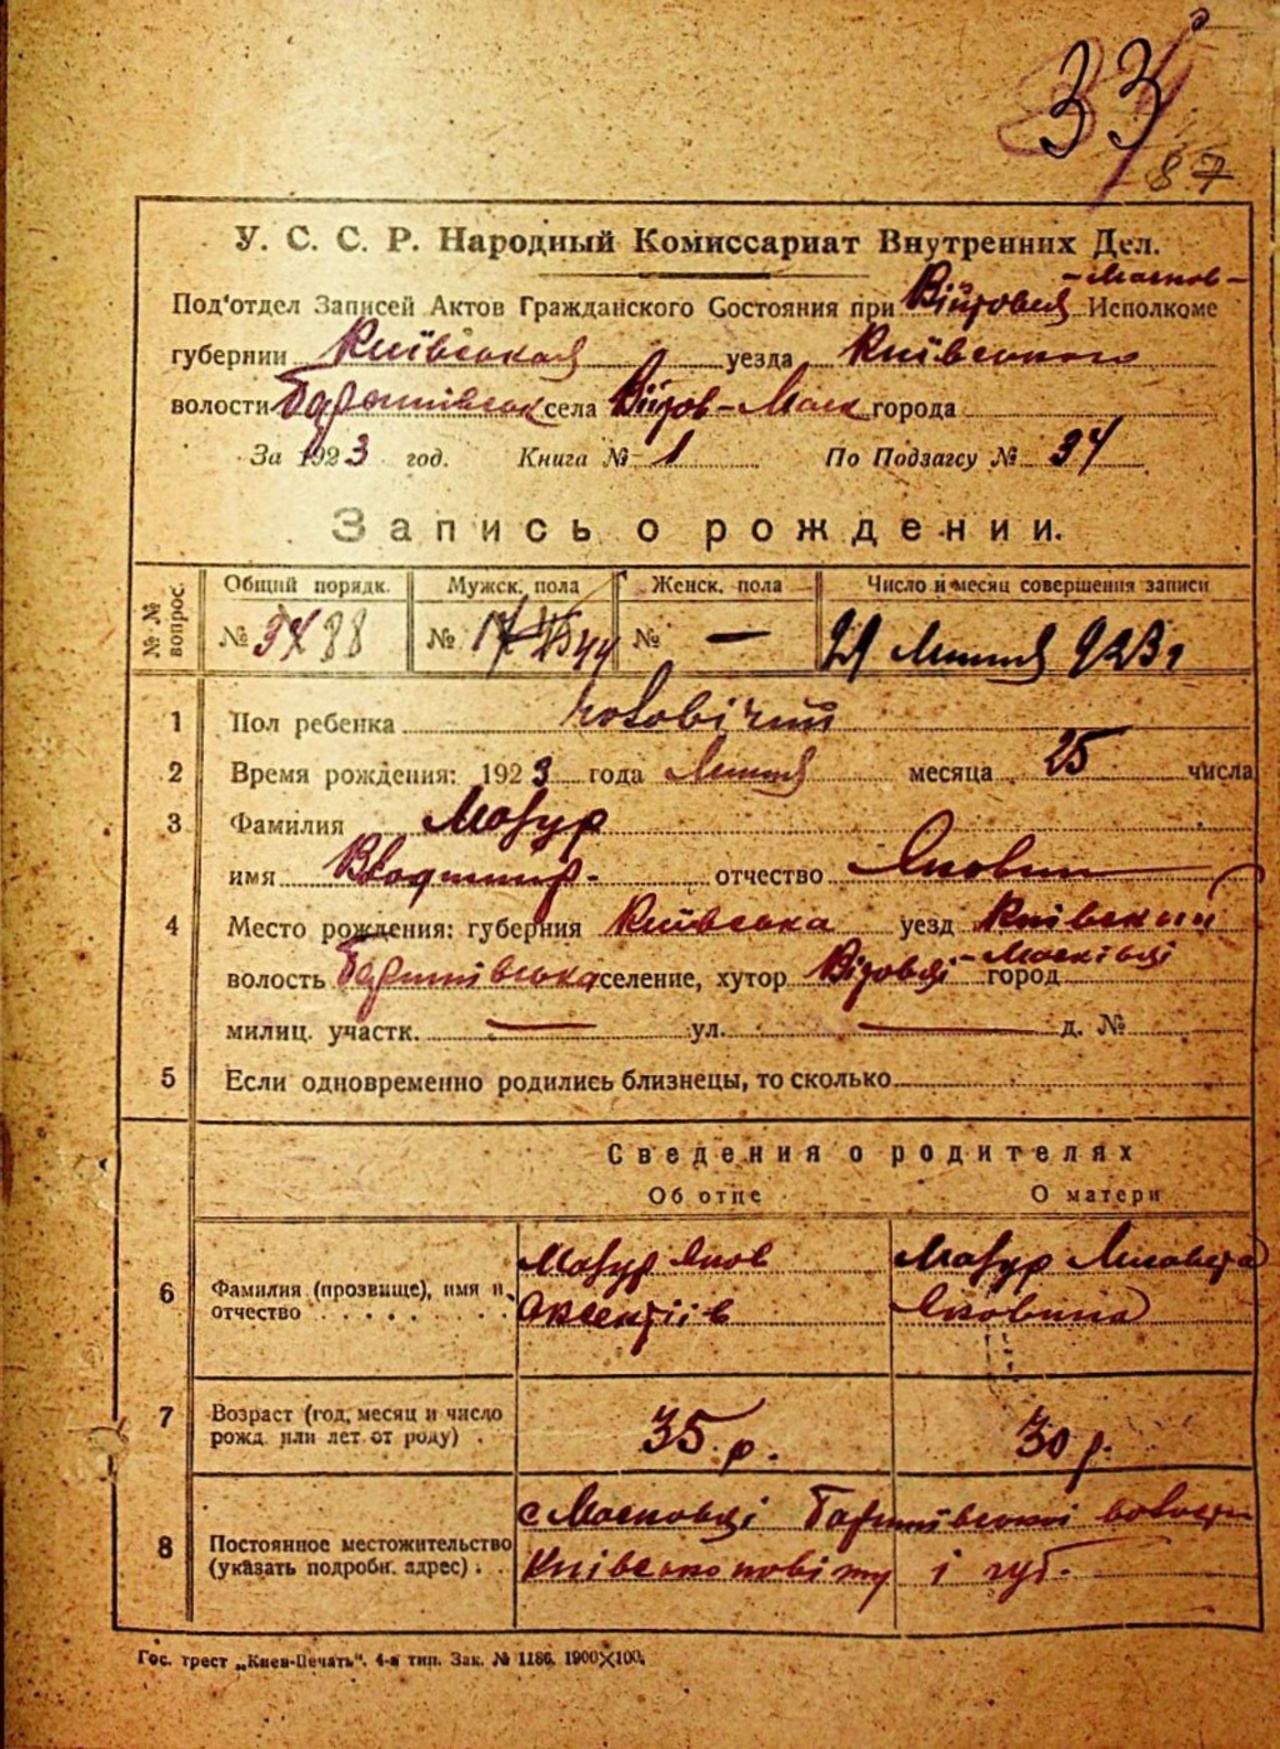 33
87
У. С. С. Р. Народный Комиссариат Внутренних Дел.
Под'отдел Записей Актов Гражданского Состояния при Исполкоме
губернии Київська уезда Київського
волости села города
За 1923 год. Книга № 1 По Подзагсу № 34
Запись о рождении.
№ № вопрос. Общий порядк. Мужск. пола Женск. пола Число и месяц совершения записи
№ 38 № 17 44 № — Липня 923 г
1 Пол ребенка чоловічий
2 Время рождения: 1923 года Липня месяца 25 числа
3 Фамилия Мазур
имя Владимир. отчество Якович
4 Место рождения: губерния Київська уезд Київський
волость Баришівська селение, хутор Війтовці-Масківці город
милиц. участк. — ул. — д. №
5 Если одновременно родились близнецы, то сколько
Сведения о родителях
Об отце О матери
6 Фамилия (прозвище), имя и отчество Мазур Яков Оксентіїв Мазур Лизавета Яковина
7 Возраст (год, месяц и число рожд. или лет от роду) 35 р. 30 р.
8 Постоянное местожительство (указать подробн. адрес) с Масковці Баришівської волости
Київського повіту і губ.
Гос. трест „Киев-Печать". 4-я тип. Зак. № 1186. 1900×100.